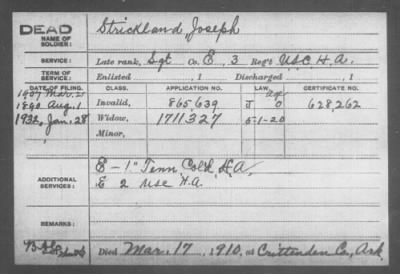 DEAD
NAME OF SOLDIER: Strickland Joseph
SERVICE: Late rank, Sgt Co. E, 3 Reg't U.S.C. H.A.
TERM OF SERVICE: Enlisted , 1 Discharged , 1
DATE OF FILING. CLASS. APPLICATION NO. LAW. CERTIFICATE NO.
1907 Mar.
1890 Aug. 1 Invalid, 865,639 J O 628,262
1932, Jan. 28 Widow, 1711327 5-1-20
Minor,
ADDITIONAL SERVICES: E - 1" Tenn Col'd H.A.
E 2 USC H.A.
REMARKS:
Died Mar. 17, 1910, at Crittenden Co., Ark.